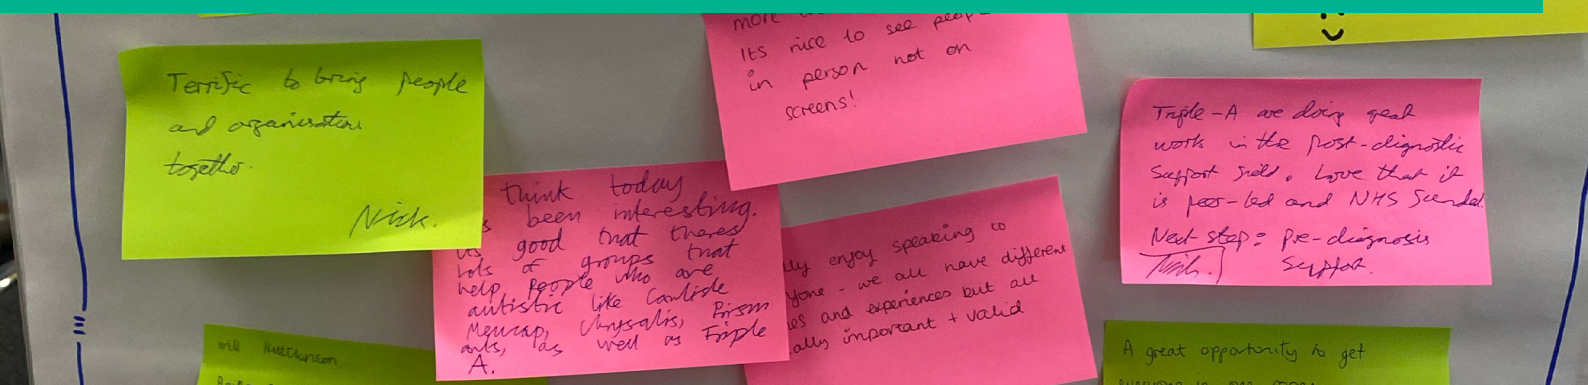 Terrific to bring people
and organisations
together.
Nick.
more
Its nice to see people
in person not on
screens!
think today
been interesting.
its good that theres
lots of groups that
help people who are
autistic like Carlisle
Mencap, Chrysalis, Prism
arts, as well as Triple
A.
enjoy speaking to
- we all have different
and experiences but all
important + valid
Triple-A are doing great
work in the post-dignostic
support field. Love that it
is peer-led and NHS
Next step: pre-diagnosis
support.
Will Hutchinson
A great opportunity to get